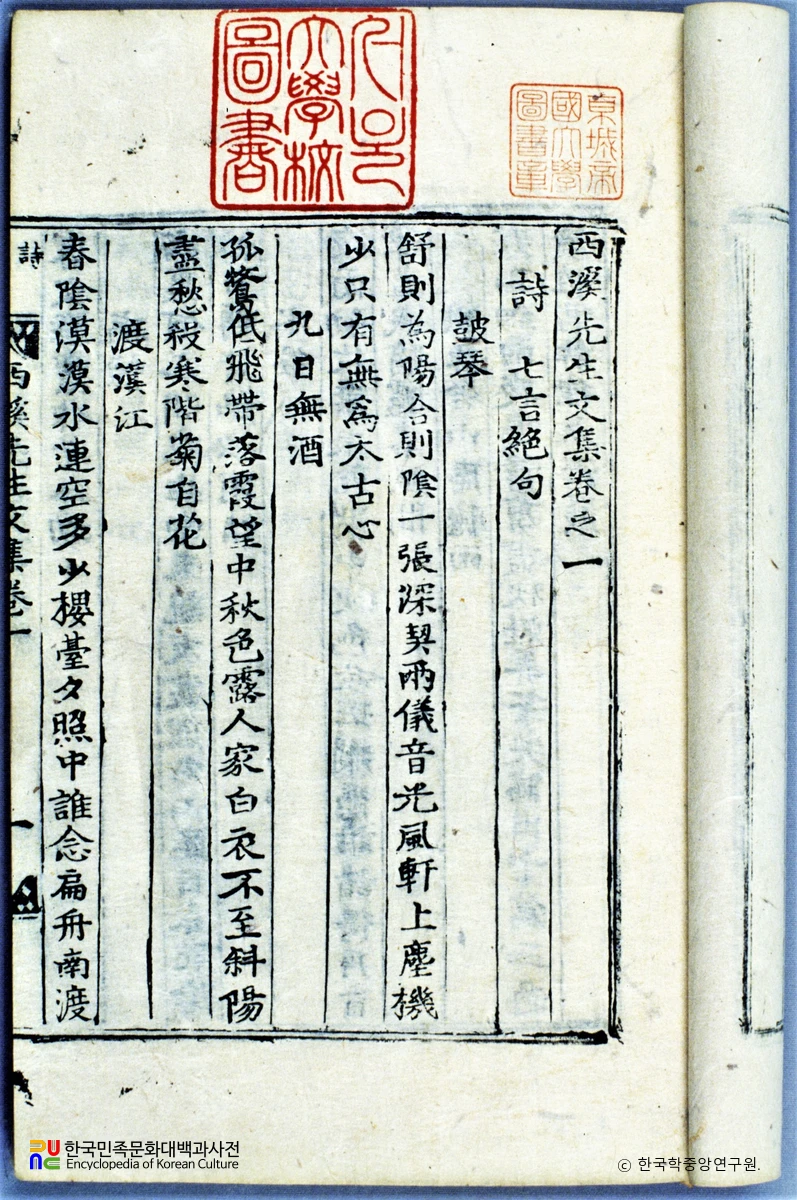 西溪先生文集卷之一
詩 七言絕句
鼓琴
舒則為陽合則陰一張深契兩儀音光風軒上塵機
少只有無爲太古心
九日無酒
孤鶩低飛帶落霞望中秋色露人家白衣不至斜陽
盡愁殺寒階菊自花
渡漢江
春陰漠漠水連空多少樓臺夕照中誰念扁舟南渡
詩
西溪先生文集卷一
一
大學校
圖書
京城帝
國大學
圖書章
한국민족문화대백과사전
Encyclopedia of Korean Culture
© 한국학중앙연구원.